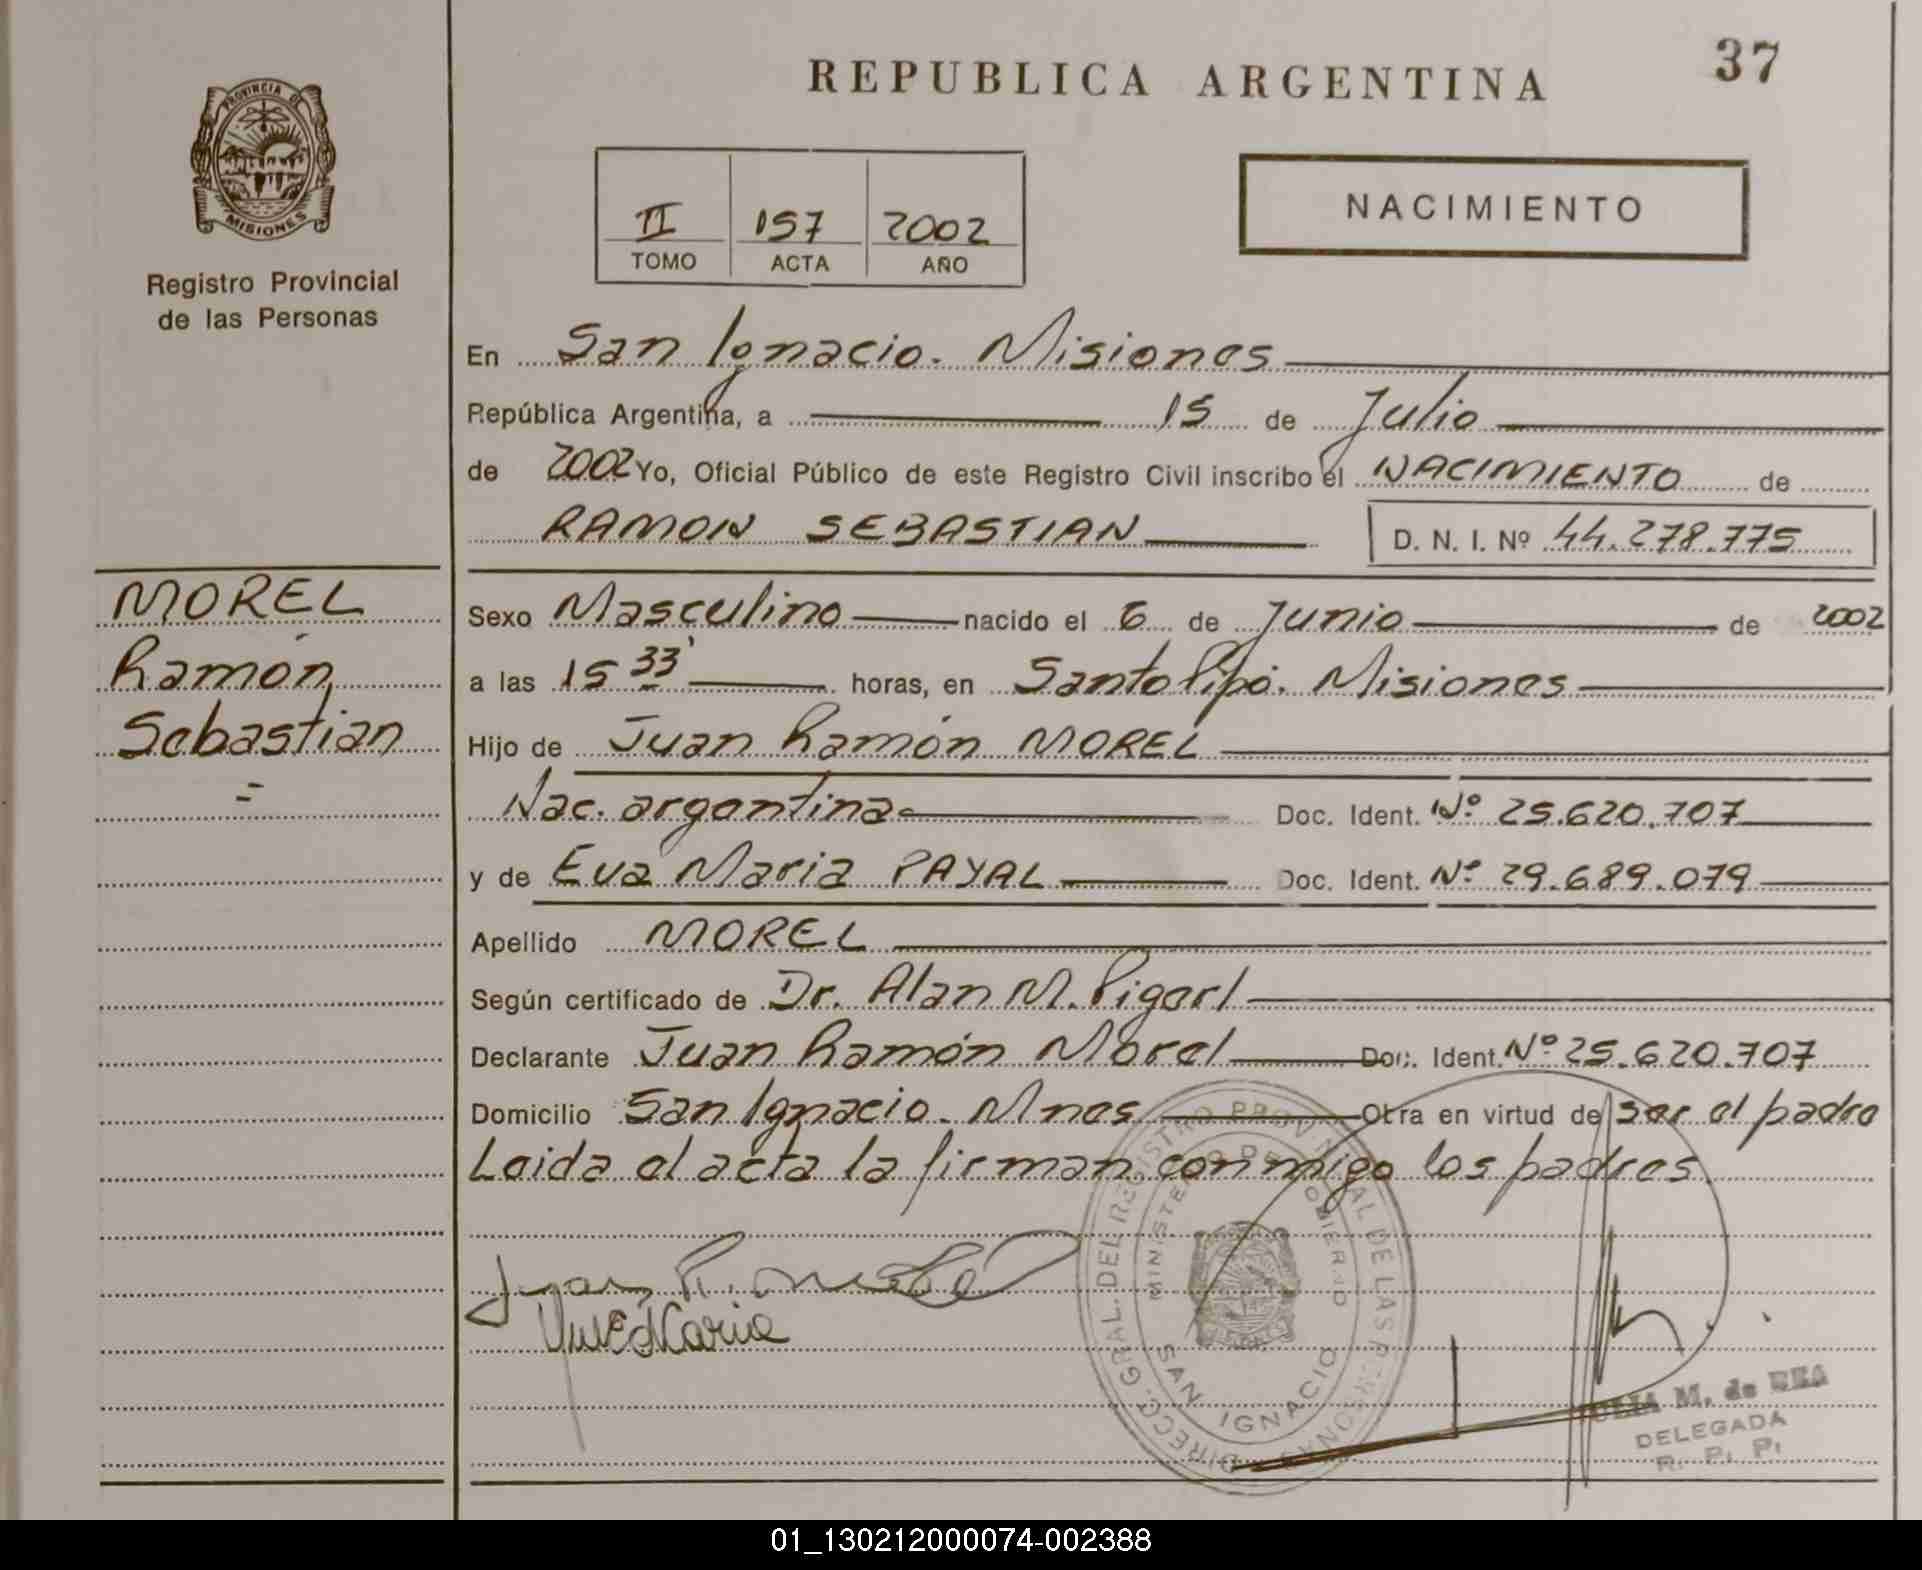 37
REPUBLICA ARGENTINA
PROVINCIA DE
MISIONES
Registro Provincial
de las Personas
II 157 2002
TOMO ACTA AÑO
NACIMIENTO
En San Ignacio. Misiones
República Argentina, a 15 de Julio
de 2002 Yo, Oficial Público de este Registro Civil inscribo el NACIMIENTO de
RAMON SEBASTIAN D. N. I. Nº 44.278.775
MOREL
Ramón
Sebastian
=
Sexo Masculino nacido el 6 de Junio de 2002
a las 15 33' horas, en Santo Pipó. Misiones
Hijo de Juan Ramón MOREL
Nac. argentina Doc. Ident. Nº 25.620.707
y de Eva Maria PAYAL Doc. Ident. Nº 29.689.079
Apellido MOREL
Según certificado de Dr. Alan M.
Declarante Juan Ramón Morel Doc. Ident. Nº 25.620.707
Domicilio San Ignacio. Mnes Otra en virtud de ser el padre
Leida el acta la firman conmigo los padres
Juan R. Morel
Maria
DIRECC. GRAL. DEL REGISTRO PROVINCIAL DE LAS PERSONAS
MINISTERIO DE GOBIERNO
SAN IGNACIO
M. de REA
DELEGADA
R. P. P.
01_130212000074-002388